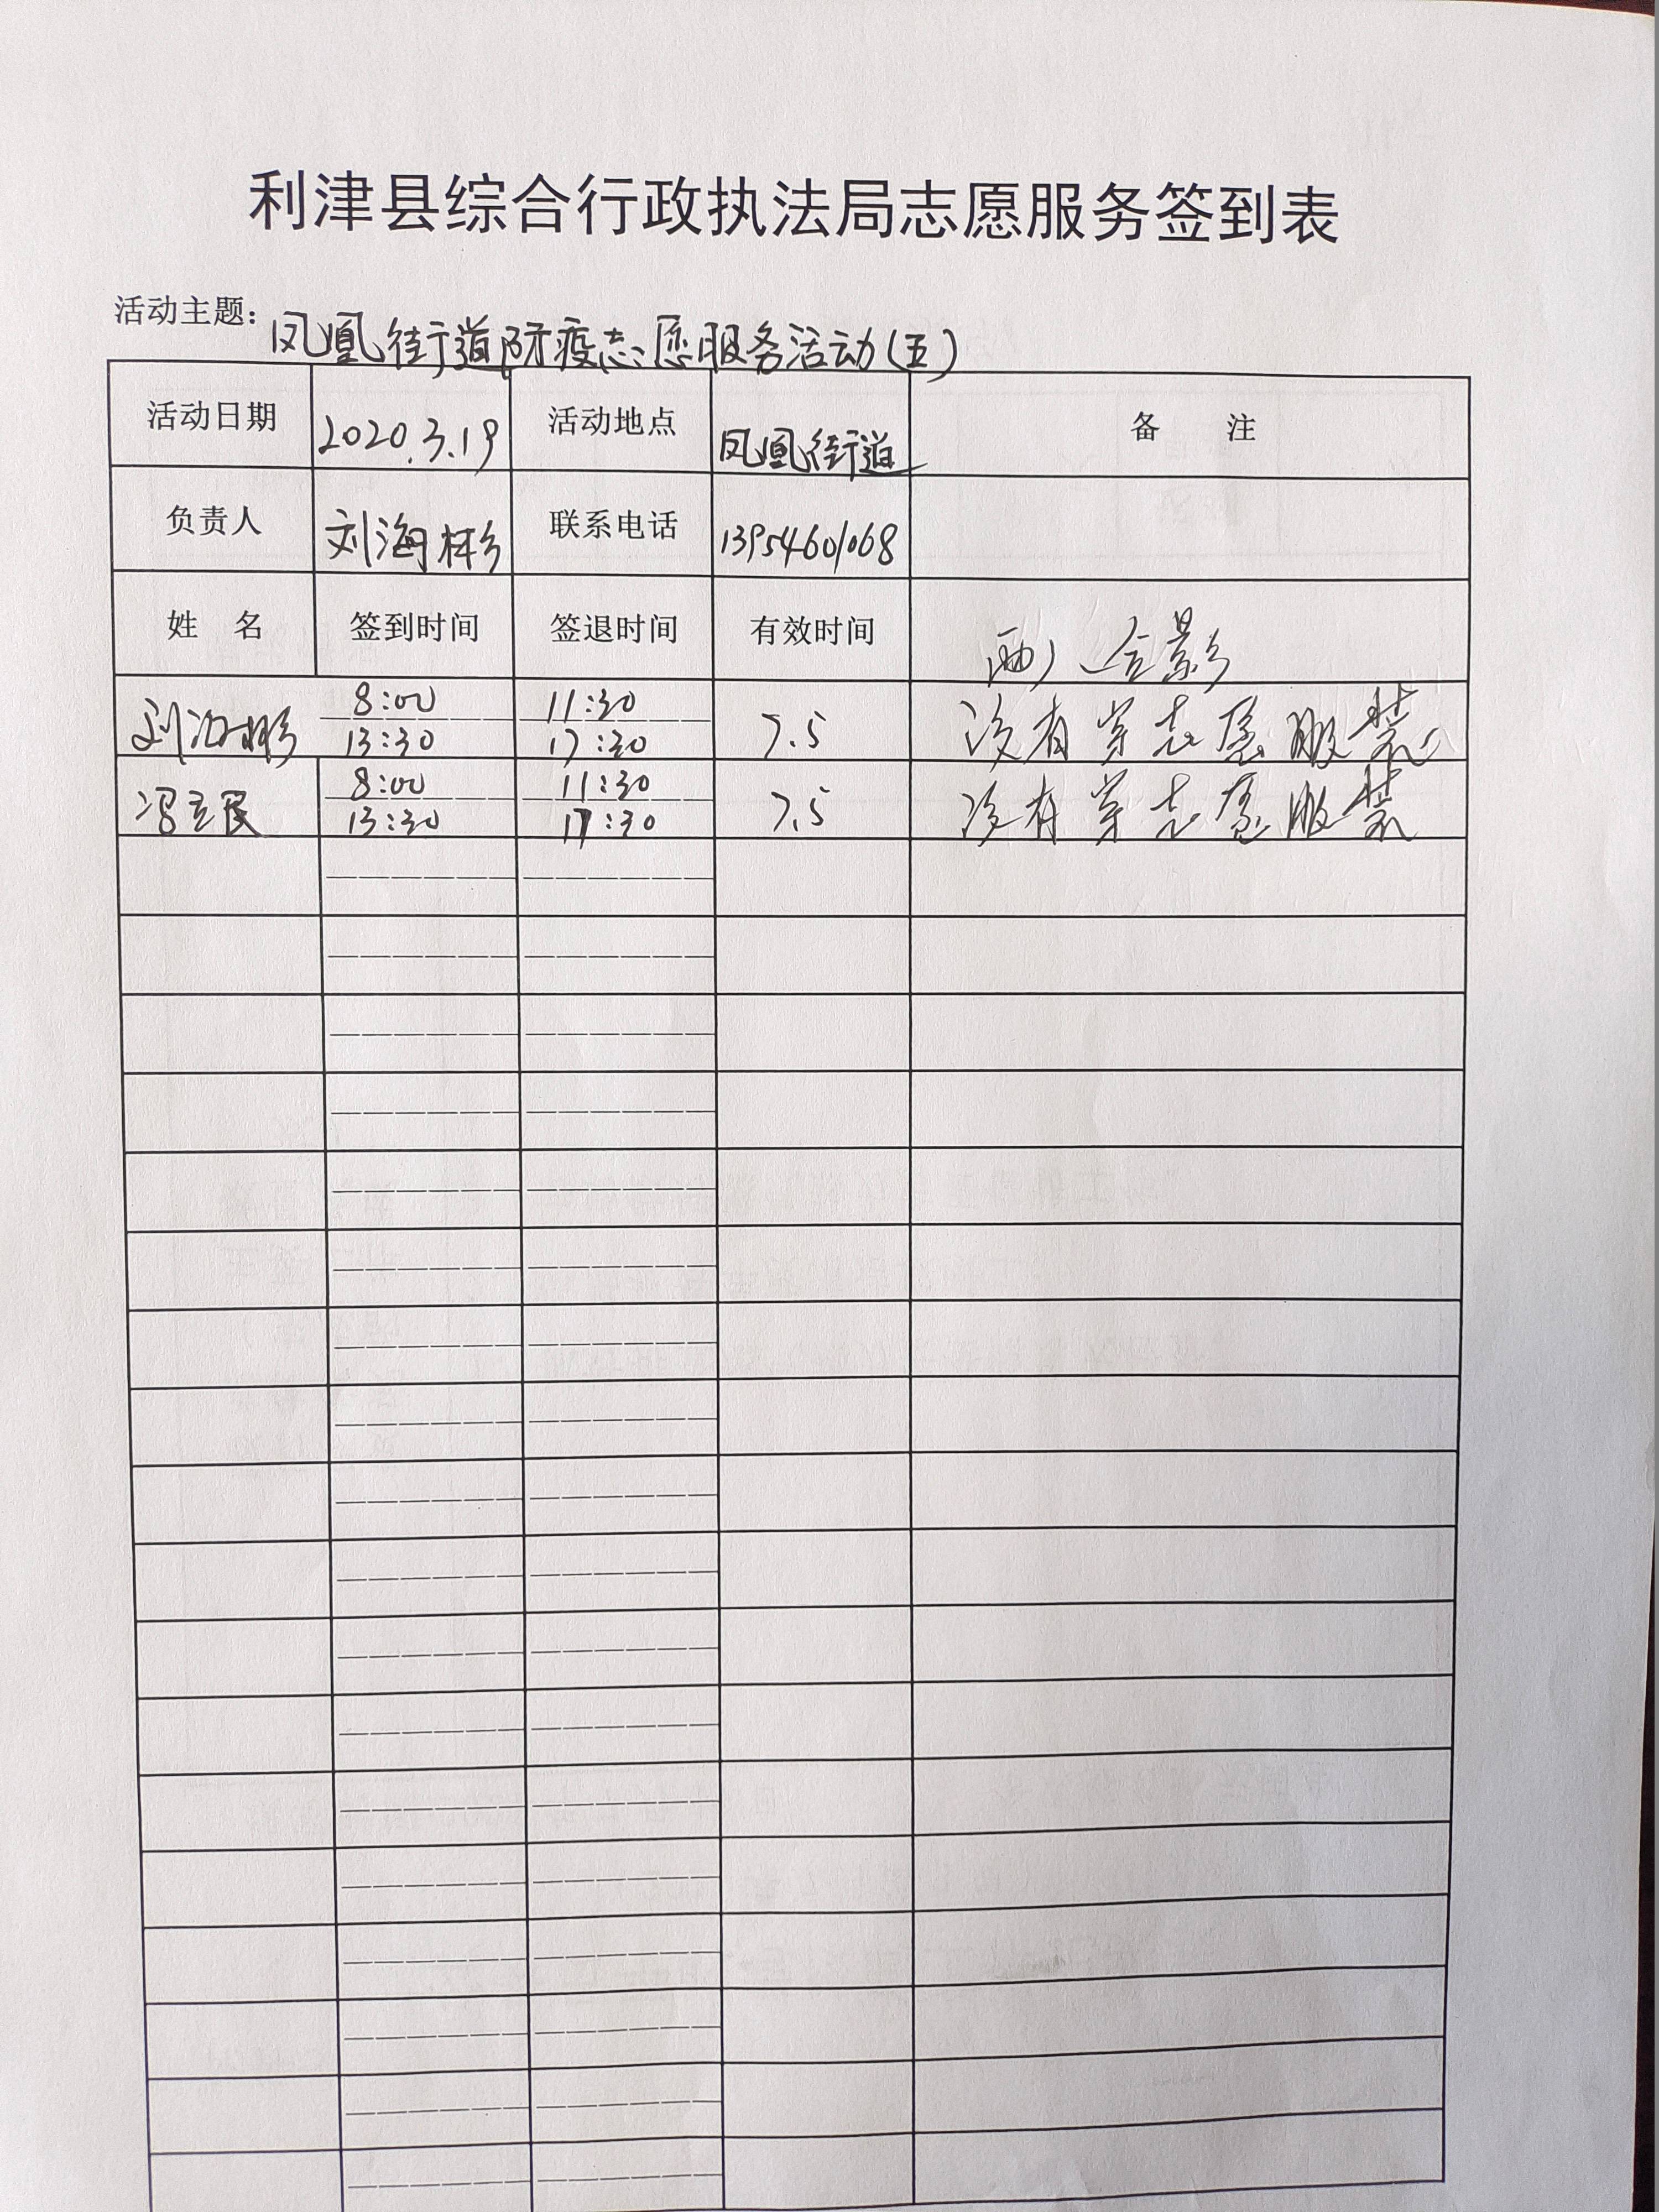 利津县综合行政执法局志愿服务签到表
活动主题：凤凰街道防疫志愿服务活动(五)
活动日期 2020.3.19 活动地点 凤凰街道 备 注
负责人 刘海彬 联系电话 13954601068
姓 名 签到时间 签退时间 有效时间 两人合影
刘海彬 8:00 11:30 7.5 没有穿志愿服装
13:30 17:30
冯立民 8:00 11:30 7.5 没有穿志愿服装
13:30 17:30